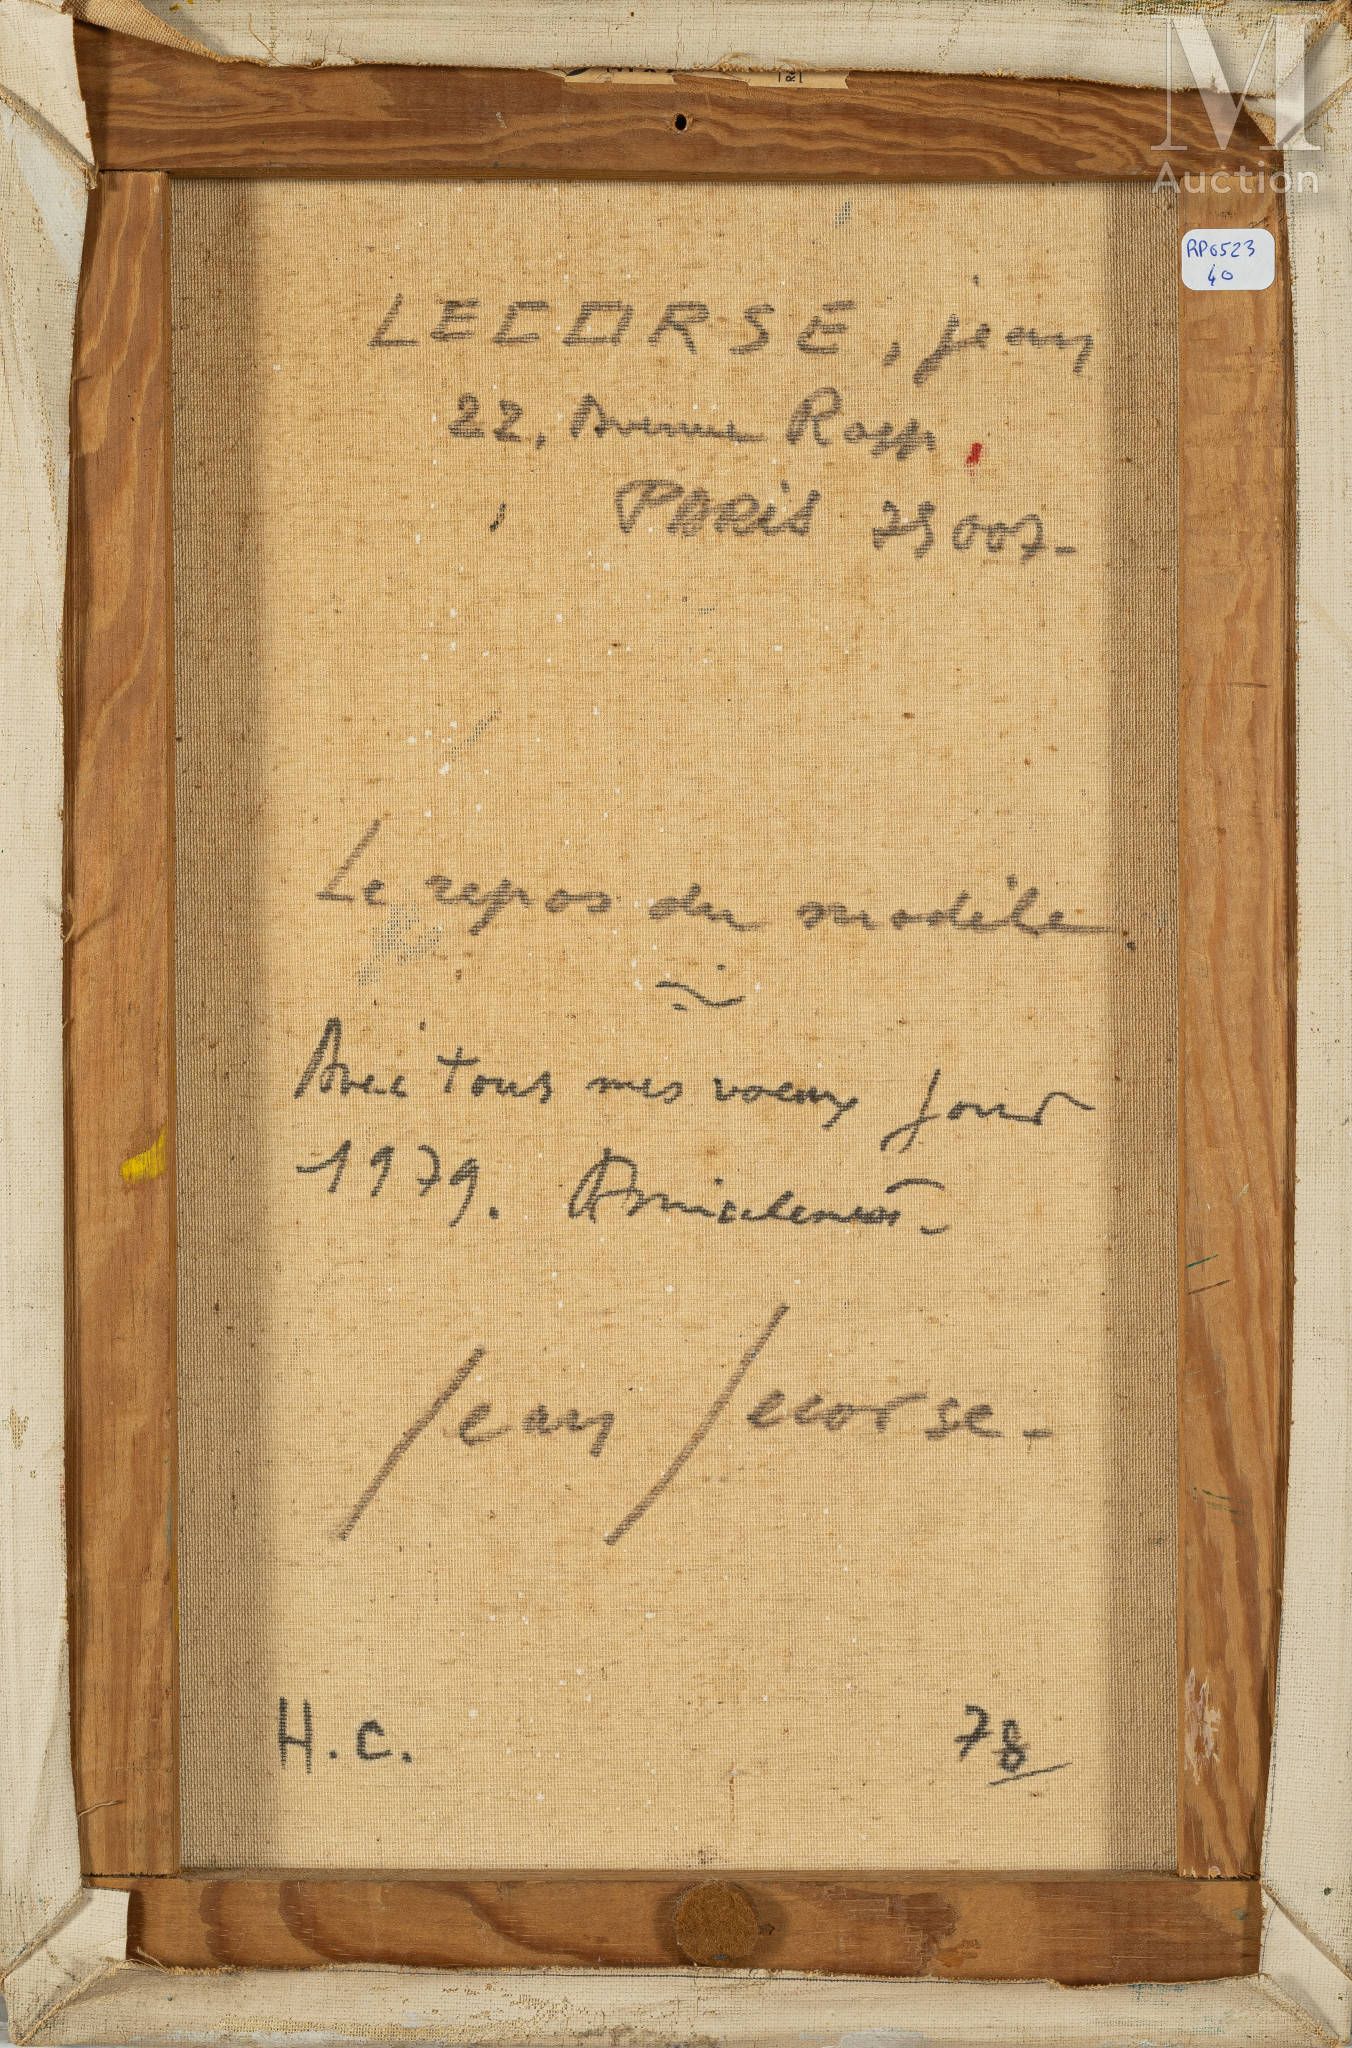 M
Auction
RP6523
40
LECORSE, jean
22, Avenue Rapp,
PARIS 75007-
Le repos du modèle
Avec tous mes voeux pour
1979. Amicalement-
Jean Lecorse-
H.C.
78